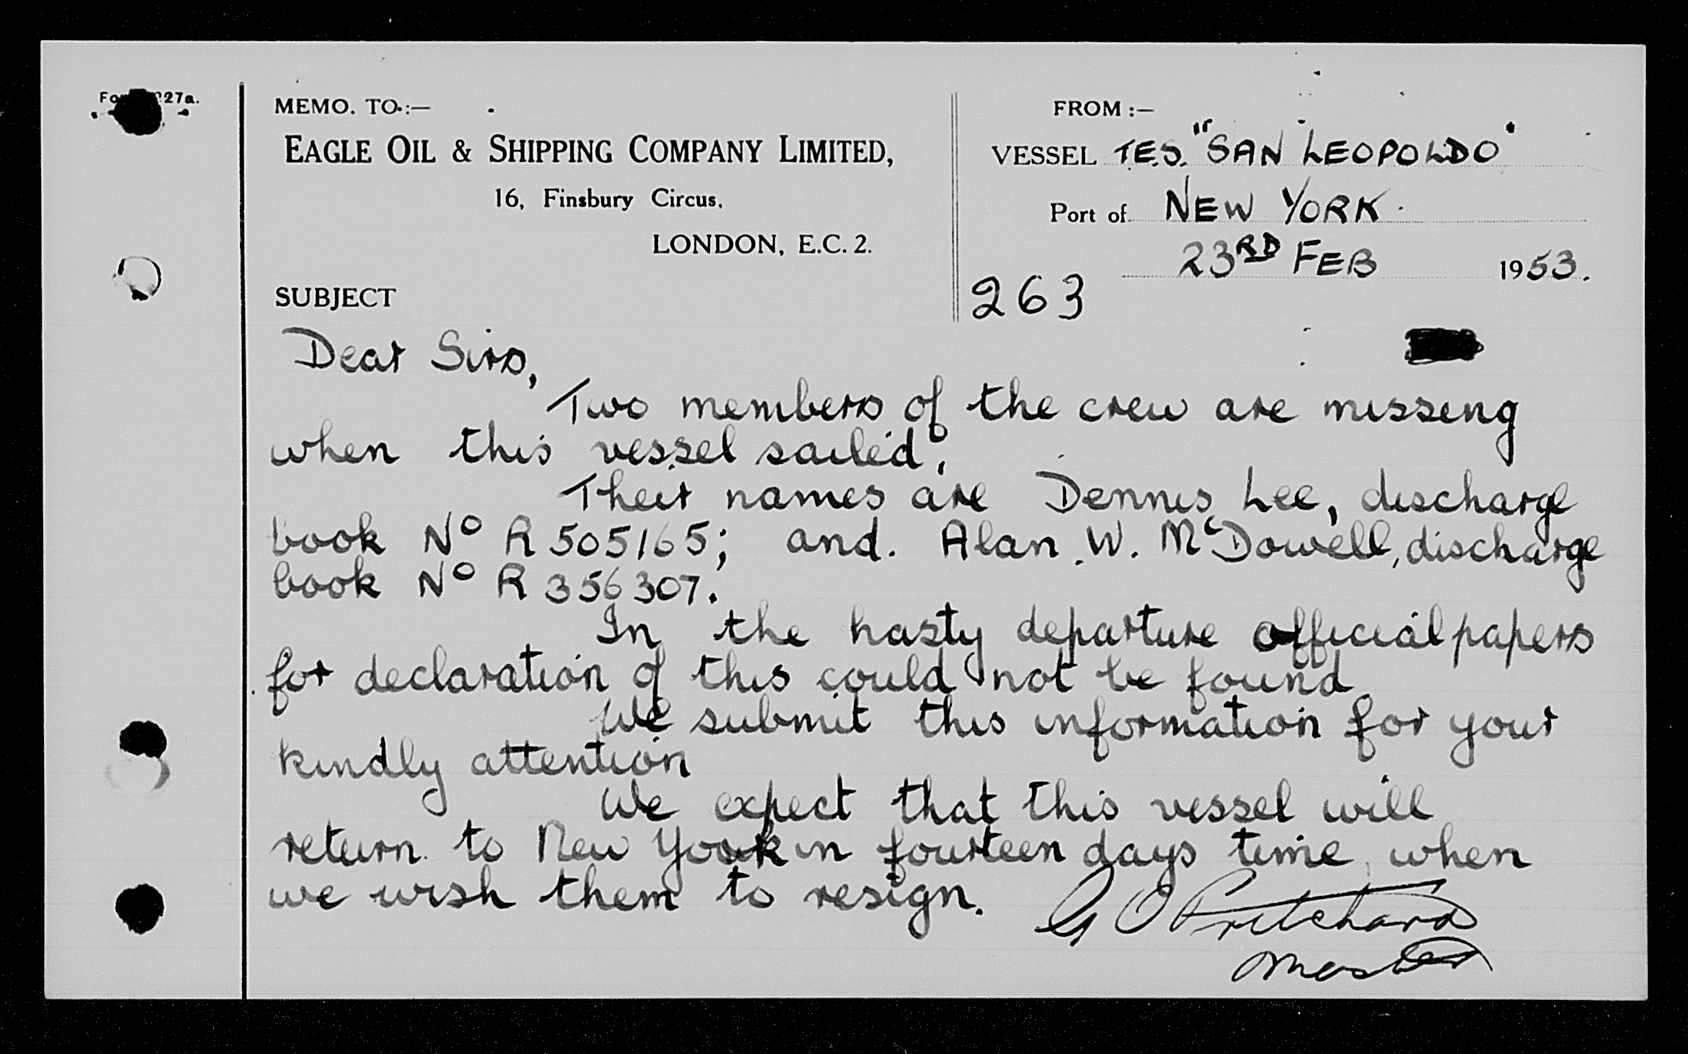 MEMO. TO:—
EAGLE OIL & SHIPPING COMPANY LIMITED,
16, Finsbury Circus,
LONDON, E.C. 2.
SUBJECT
FROM :—
VESSEL T.E.S. "SAN LEOPOLDO"
Port of NEW YORK.
23RD FEB 1953.
263
Dear Sirs,
Two members of the crew are missing
when this vessel sailed.
Their names are Dennis Lee, discharge
book No R 505165; and. Alan W. McDowell, discharge
book No R 356307.
In the hasty departure official papers
for declaration of this could not be found
We submit this information for your
kindly attention
We expect that this vessel will
return to New York in fourteen days time, when
we wish them to resign.
G O Pritchard
Master